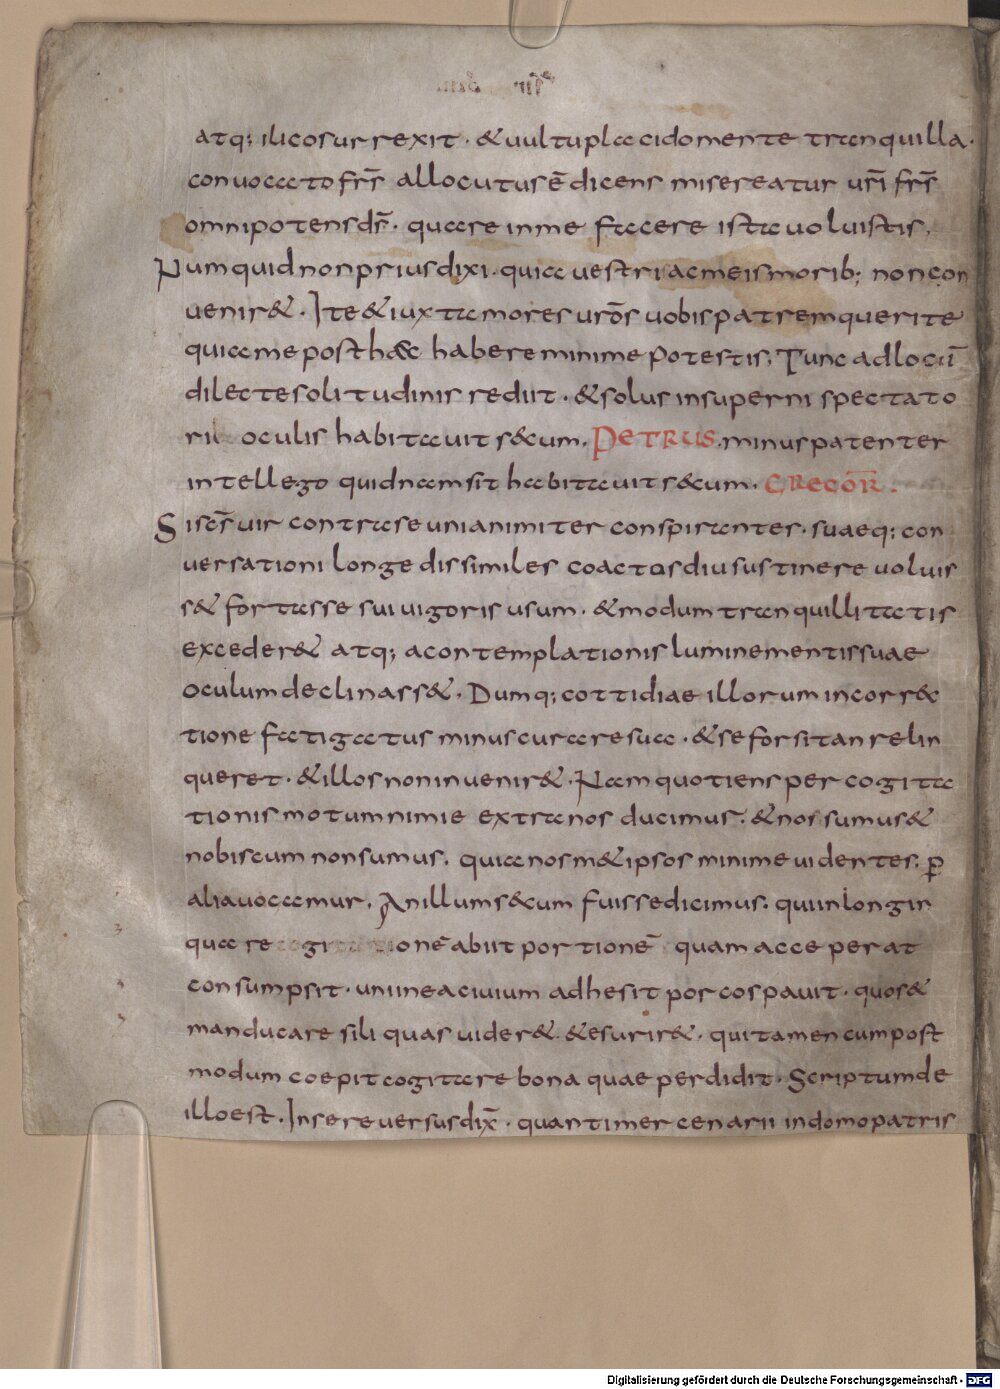 atq; ilico surrexit · & uultu placcido mente tranquilla ·
conuocato fr̄s allocutus ē dicens misereatur ur̄i fr̄s
omnipotens d̄s · quare in me facere ista uoluistis,
Numquid non prius dixi · quia uestri ac meis morib; non con
uenir& · Ite & iuxta mores ur̄os uobis patrem querite
quia me post h&c habere minime potestis, Tunc ad locū
dilecte solitudinis rediit · & solus in superni spectato
ri oculis habitauit s&cum · PETRUS · minus patenter
intellego quidnam sit habitauit s&cum · GREGOR̄ ·
Si sc̄s uir contra se unianimiter conspirantes · suaeq; con
uersationi longe dissimiles coactos diu sustinere uoluis
s& fortasse sui uigoris usum · & modum tranquillitatis
exceder& atq; a contemplationis lumine mentis suae
oculum declinass& · Dumq; cottidiae illorum incorr&c
tione fatigatus minus curare sua · & se forsitan relin
queret · & illos non inuenir& · Nam quotiens per cogita
tionis motum nimie extra nos ducimus · & nos sumus &
nobiscum non sumus · quia nosm&ipsos minime uidentes · p̄
alia uocamur · An illum s&cum fuisse dicimus · qui in longin
qua re gi onē abiit portionē quam acceperat
consumpsit · uni in ea ciuium adhesit porcos pauit · quos &
manducare siliquas uider& · & esurir& · qui tamen cum post
modum coepit cogitare bona quae perdidit · Scriptum de
illo est · In se reuersus dix̄ · quanti mercenarii in domo patris
Digitalisierung gefördert durch die Deutsche Forschungsgemeinschaft - DFG